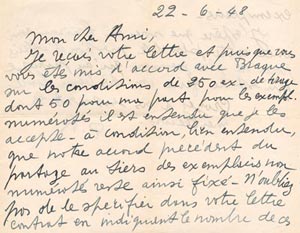 22-6-48
Mon cher Ami,
Je reçois votre lettre et puisque vous
vous êtes mis d'accord avec Braque
sur les conditions de 250 ex- de tirage
dont 50 pour ma part pour les exempl-
numérotés il est entendu que je les
accepte - à condition, bien entendu,
que notre accord précédent du
partage au tiers des exemplaires non
numérotés reste ainsi fixé - N'oubliez
pas de le spécifier dans votre lettre
contrat en indiquant le nombre de ces